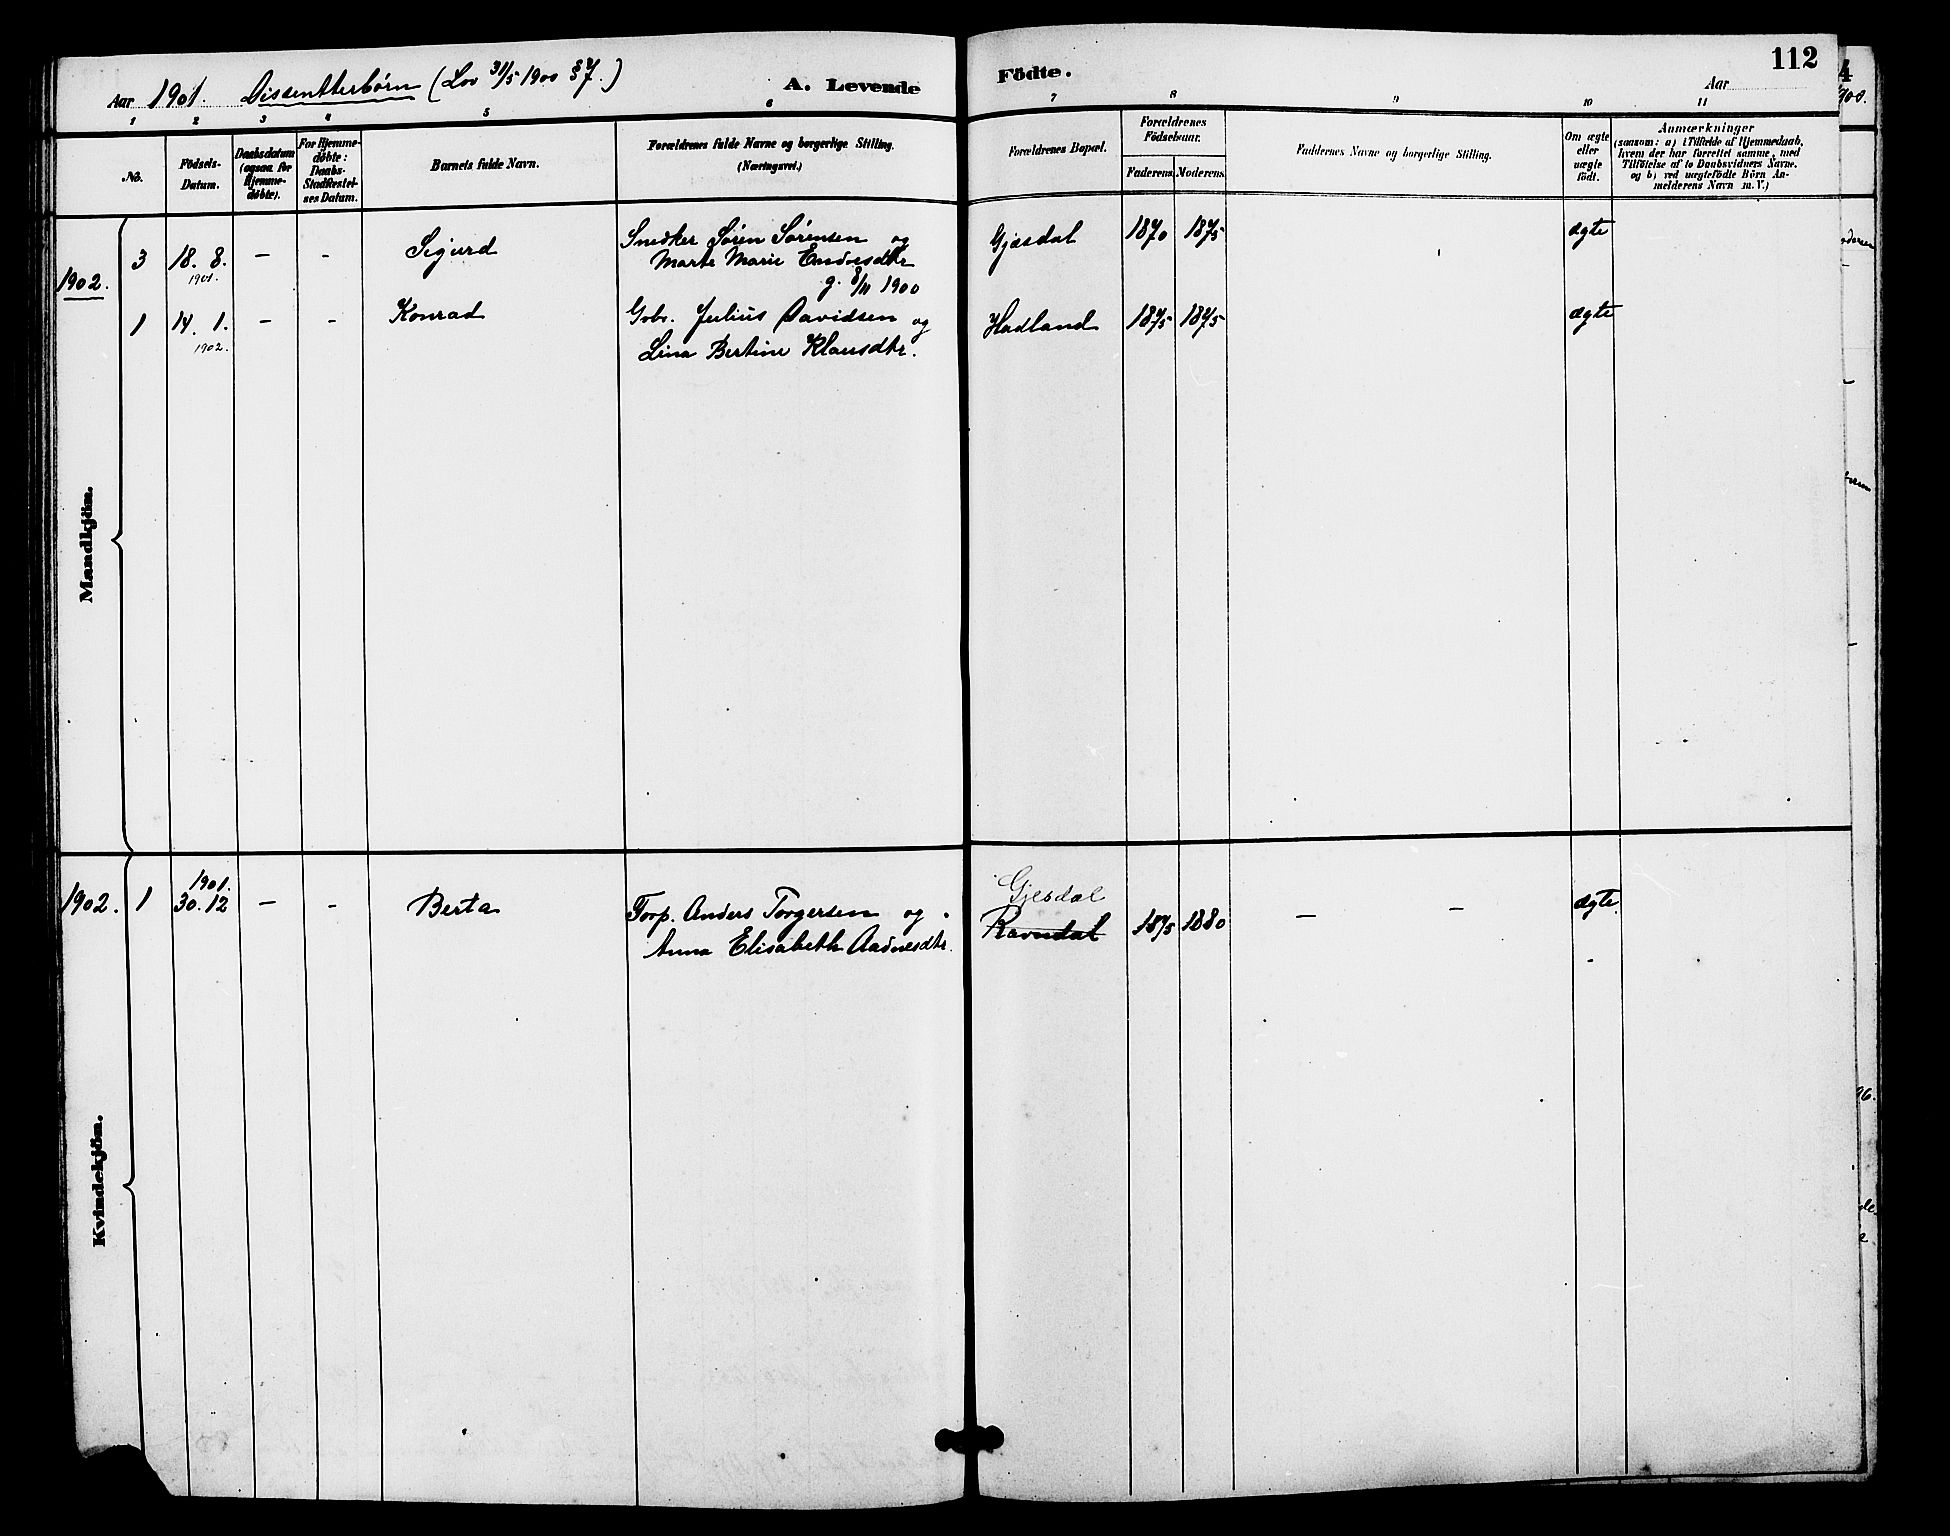 Aar 1901. Dissentterbørn (Lov 31/5 1900 § 7.) A. Levende Födte. Aar 112
1 2 3 4 5 6 7 8 9 10 11
No. Födsels-Datum. Daabsdatum (ogsaa for Hjemme-döbte). For Hjemme-döbte: Daabs-Stadfæstel-ses Datum. Barnets fulde Navn. Forældrenes fulde Navne og borgerlige Stilling. (Næringsvei.) Forældrenes Bopæl. Forældrenes Födselsaar. Faderens. Moderens. Faddernes Navne og borgerlige Stilling. Om ægte eller uægte födt. Anmærkninger (saasom: a) i Tilfælde af Hjemmedaab, hvem der har forrettet samme, med Tilföielse af to Daabsvidners Navne. og b) ved uægtefödte Börn An-melderens Navn m. V.)
Mandkjön.
3 18. 8. 1901. – – Sigurd Snedker Søren Sørensen og Gjesdal 1870 1875 ægte
Marte Marie Endresdtr
g. 8/11 1900
1902.
1 14. 1. 1902. – – Konrad Gbr. Julius Davidsen og Hadland 1875 1875 ægte
Lina Bertine Klausdtr.
Kvindekjön.
1902. 1 1901. 30. 12 – – Berta Torp. Anders Torgersen og Gjesdal Ravndal 1875 1880 – – ægte.
Anna Elisabeth Aadnesdtr.